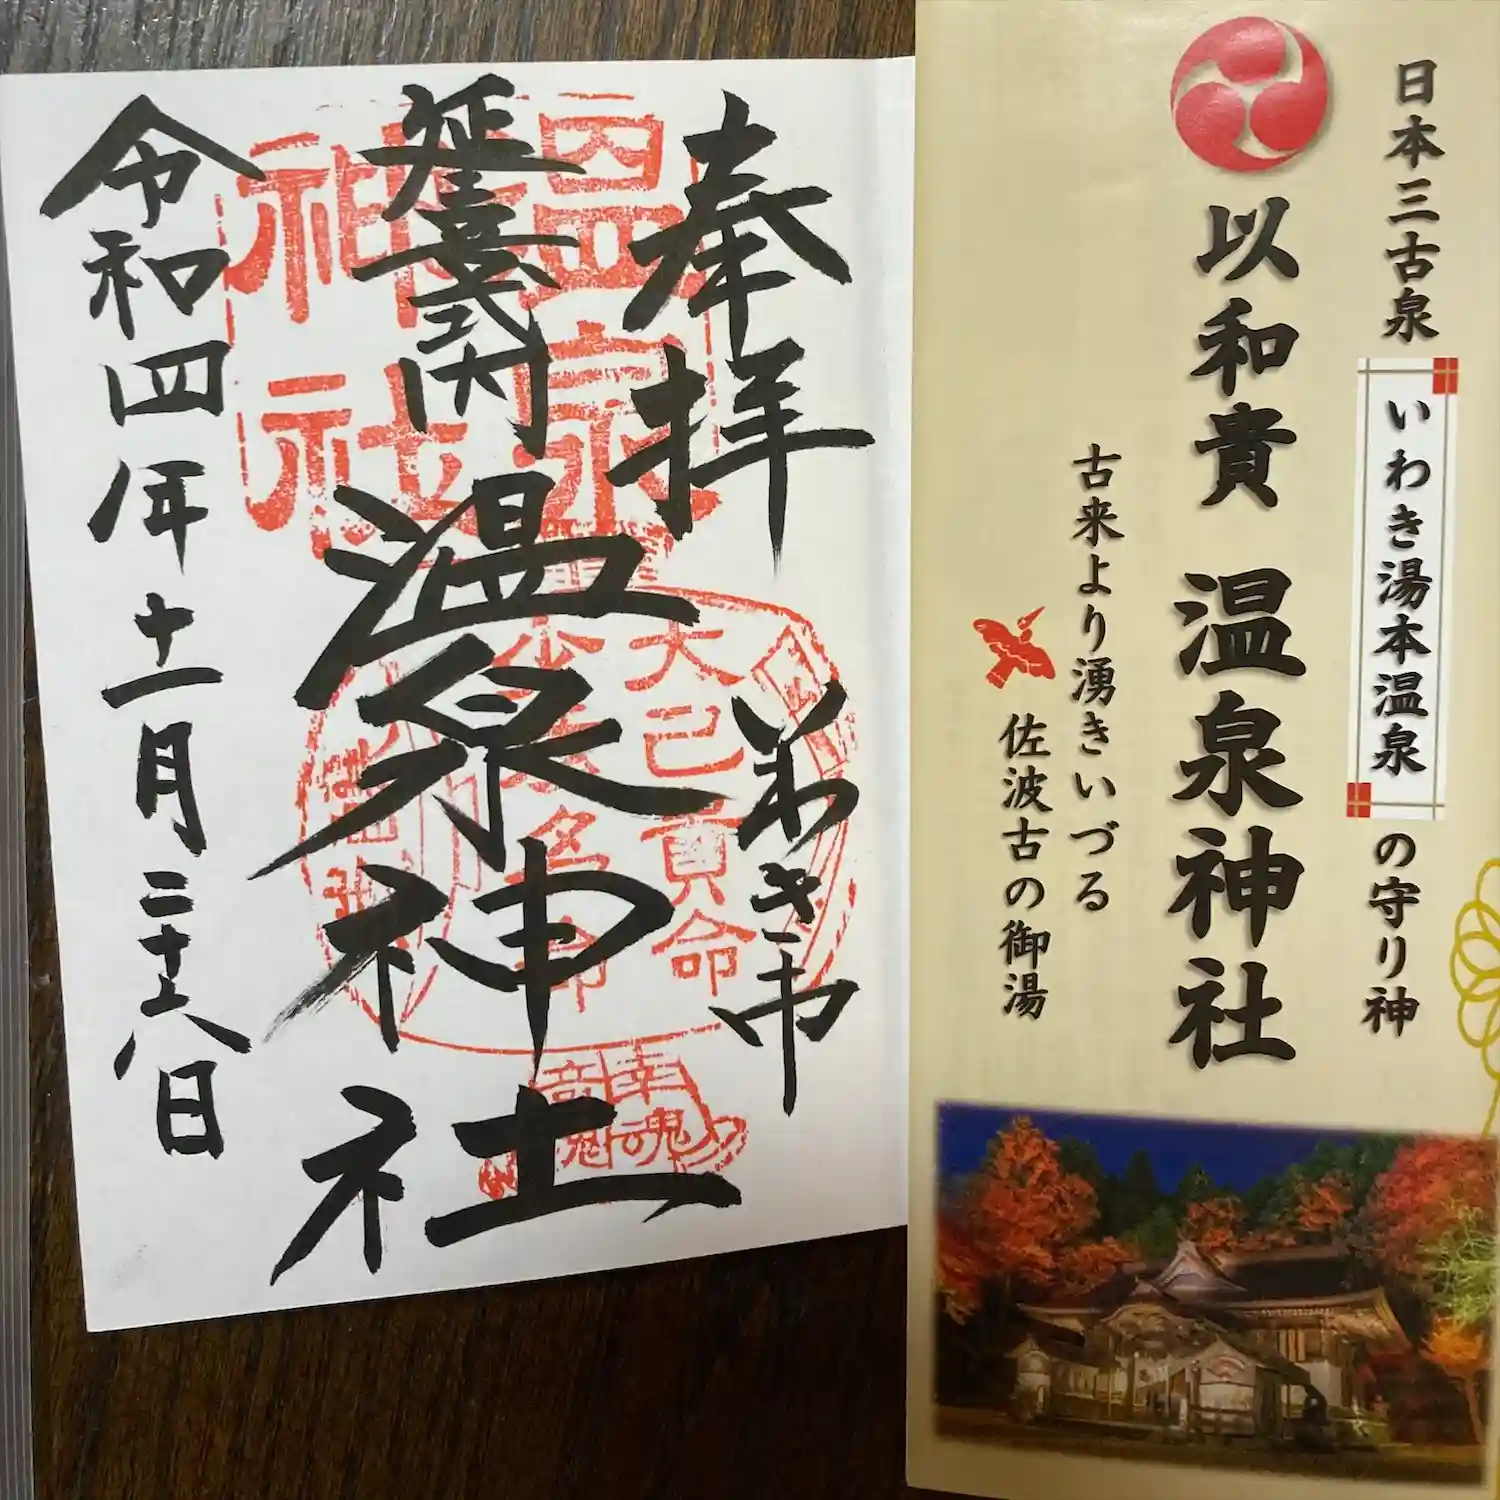 日本三古泉 いわき湯本温泉 の守り神
以和貴 温泉神社
古来より湧きいづる
佐波古の御湯
奉拝
いわき市
延喜式内
温泉神社
令和四年十一月二十六日
温泉
神社
大己貴命
少彦名命
幸魂
奇魂